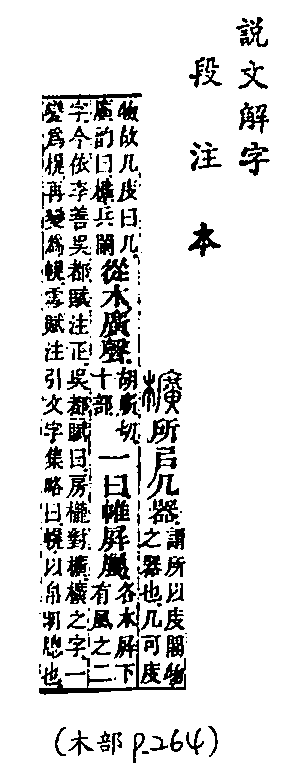 說文解字
段注本
櫎所㠯几器謂所以庋閣物
之器也几可庋
物故几庋曰几
廣韵曰櫎兵闌從木廣聲胡廣切
十部一曰帷屏屬各本屏下
有風之二
字今依李善吳都賦注正吳都賦曰房櫳對櫎櫎之字一
變爲榥再變爲幌雪賦注引文字集略曰幌以帛明牕也
(木部 P.264)